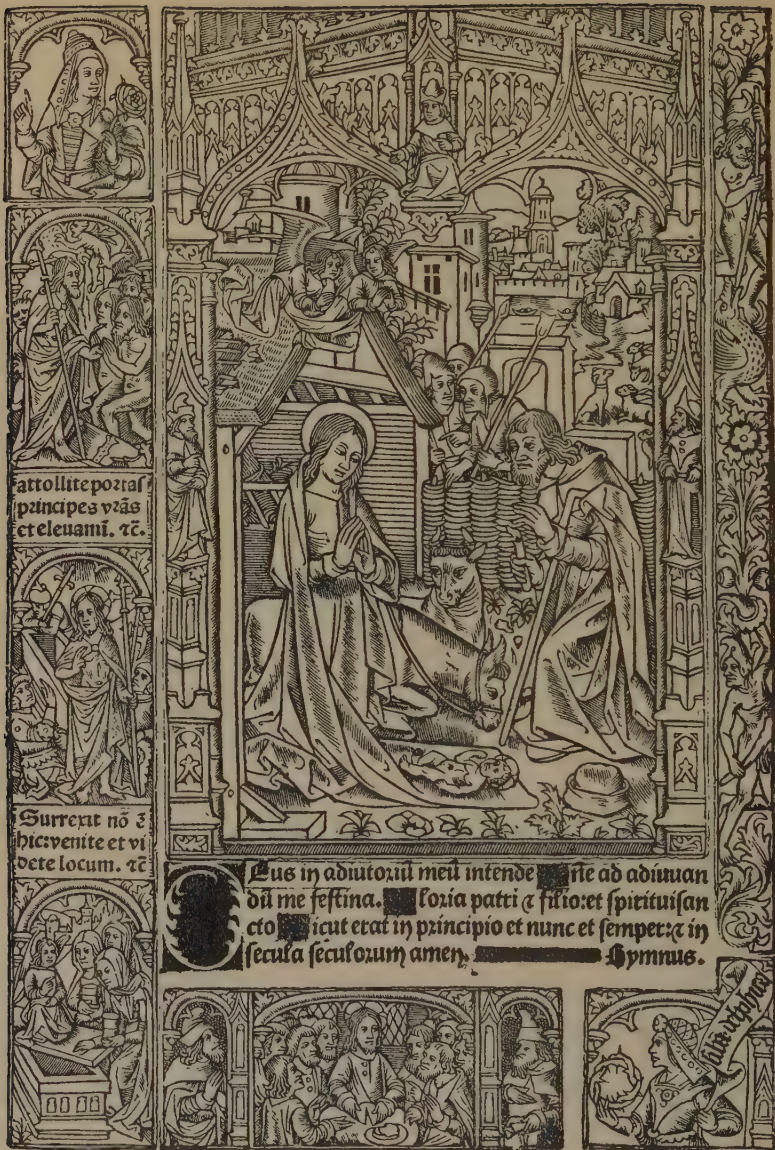 attollite portaſ
principes vrãs
et eleuamĩ. ⁊c̃.
Surrexit nõ ẽ
hic:venite et vi
dete locum. ⁊c̃
Eus in adiutoriũ meũ intende ne ad adiuuan
dũ me feſtina. loria patri ⁊ filio:et ſpirituiſan
cto icut erat in principio et nunc et ſemper:⁊ in
ſecula ſeculorum amen. Hymnus.